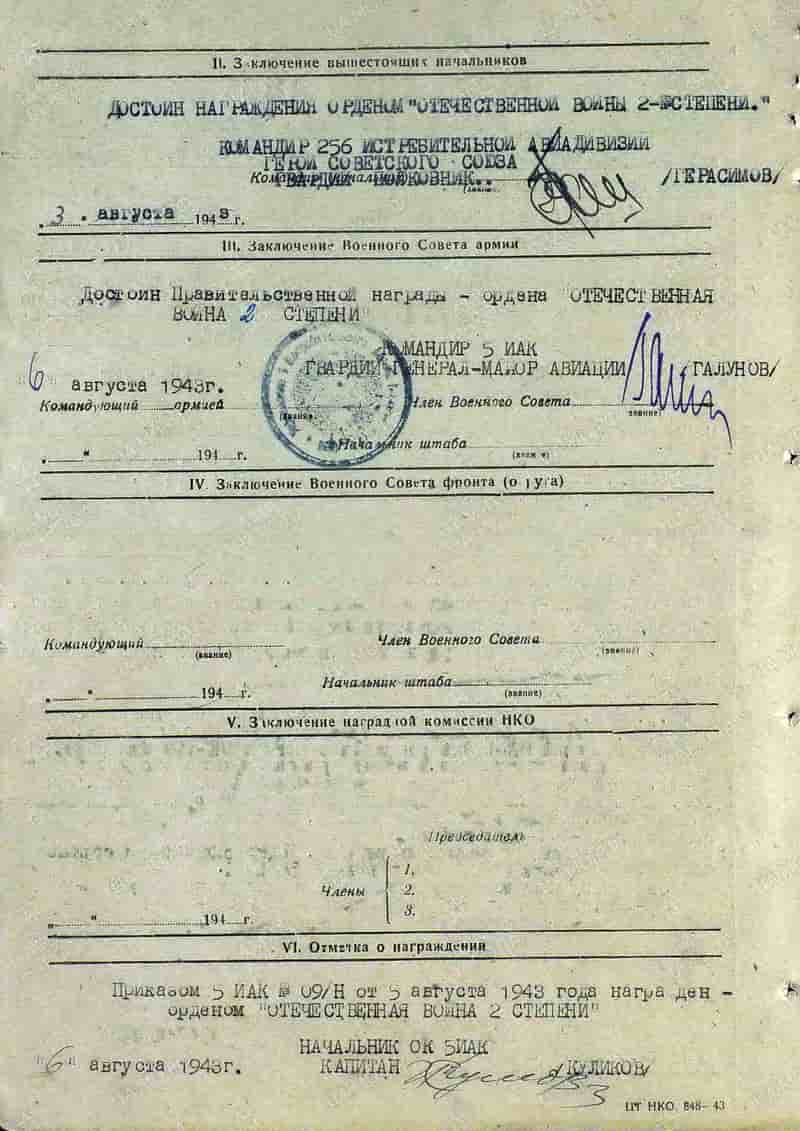 II. Заключение вышестоящих начальников
ДОСТОИН НАГРАЖДЕНИЯ ОРДЕНОМ "ОТЕЧЕСТВЕННОЙ ВОЙНЫ 2-СТЕПЕНИ."
КОМАНДИР 256 ИСТРЕБИТЕЛЬНОЙ АВИАДИВИЗИИ
ГЕРОЙ СОВЕТСКОГО СОЮЗА
ГВАРДИИ ПОЛКОВНИК.. /ГЕРАСИМОВ/
3 . августа 1943 г.
III. Заключение Военного Совета армии
Достоин Правительственной награды - ордена "ОТЕЧЕСТВЕННАЯ
ВОЙНА 2 СТЕПЕНИ"
КОМАНДИР 5 ИАК
ГВАРДИИ ГЕНЕРАЛ-МАЙОР АВИАЦИИ /ГАЛУНОВ/
"6" августа 1943г.
Командующий армией Член Военного Совета
(звание) (звание)
Начальник штаба
„ “ 194 г.
IV. Заключение Военного Совета фронта (округа)
Командующий Член Военного Совета
(звание) (звание)
Начальник штаба
„ “ 194 г. (звание)
V. Заключение наградной комиссии НКО
Председатель
1.
Члены 2.
3.
„ “ 194 г.
VI. Отметка о награждении
Приказом 5 ИАК № 09/Н от 5 августа 1943 года награжден -
орденом "ОТЕЧЕСТВЕННАЯ ВОЙНА 2 СТЕПЕНИ"
НАЧАЛЬНИК ОК 5ИАК
"6" августа 1943г. КАПИТАН /КУЛИКОВ/
ЦТ НКО. 848–43